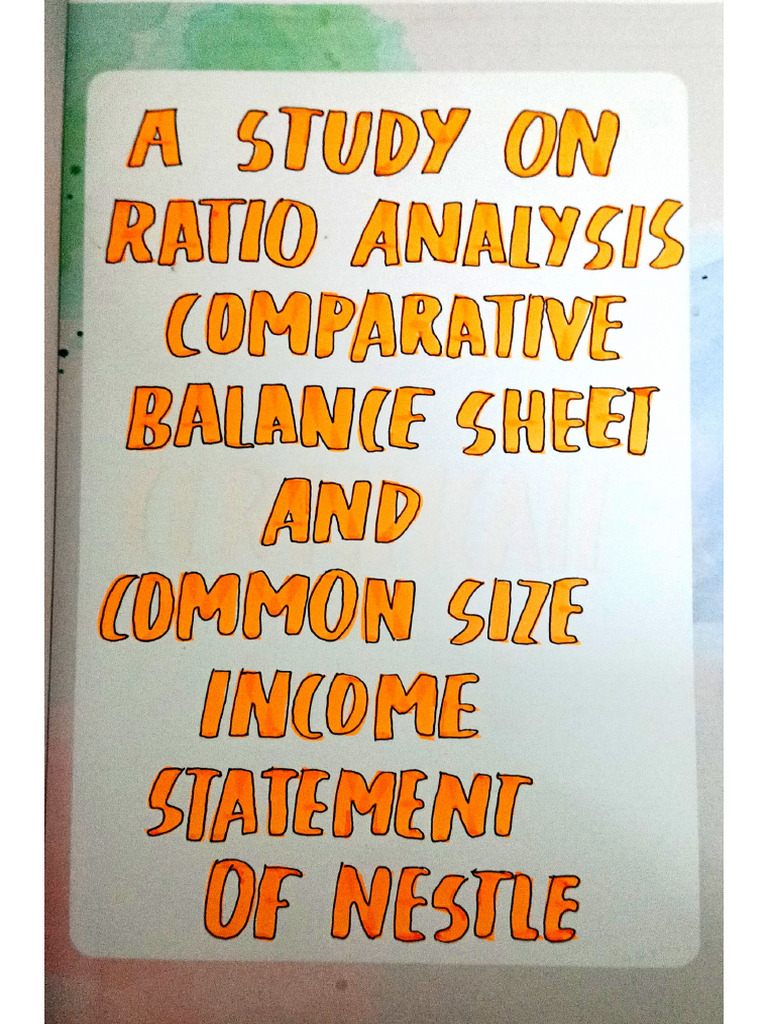 A STUDY ON
RATIO ANALYSIS
COMPARATIVE
BALANCE SHEET
AND
COMMON SIZE
INCOME
STATEMENT
OF NESTLE